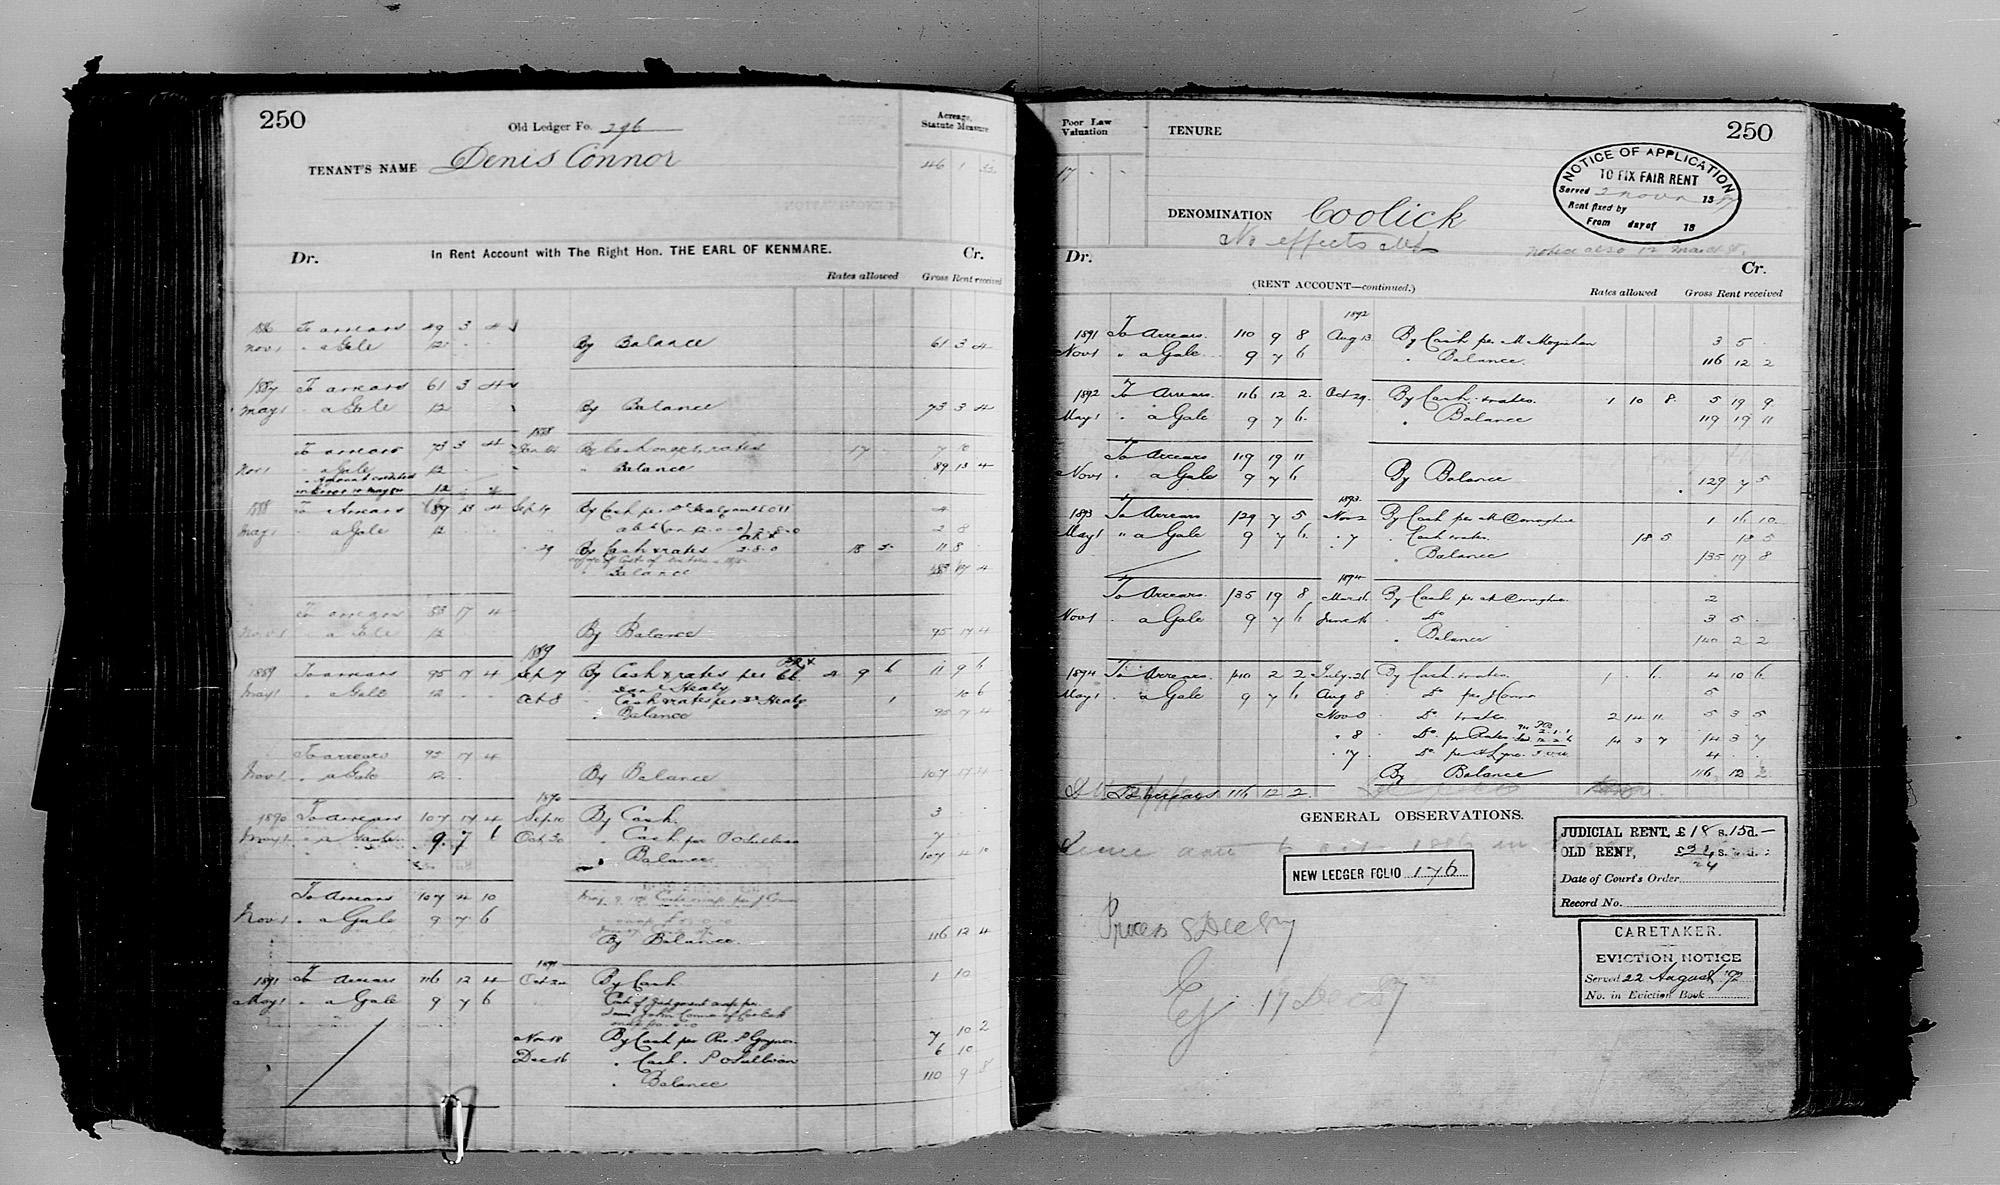 250
Old Ledger Fo. 296
Acreage,
Statute Measure
TENANT'S NAME Denis Connor
46 1
Dr. In Rent Account with The Right Hon. THE EARL OF KENMARE. Cr.
Rates allowed Gross Rent received
1886 To arrears 49 3 4
Nov 1 " a Gale 12 By Balance 61 3 4
1887 To arrears 61 3 4
May 1 " a Gale 12 By Balance 73 3 4
1888
To arrears 73 3 4 By Cash & rates 17
Nov 1 " a Gale 12 " Balance 89 13 4
Amount credited
in error to May 12
1888 To Arrears 89 13 4 Sep 19 By Cash per 4
May 1 a Gale 12 2 8
" 29 By Cash & rates 2.8.0 18 5 11 8
" Balance 83 17 4
To arrears 83 17 4
Nov 1 " a Gale 12 By Balance 95 17 4
1889
1889 To arrears 95 17 4 Sep 7 By Cash & rates per 2 9 6 11 9 6
May 1 " a Gale 12 Healy
Oct 8 " Cash & rates per Healy 1 10 6
" Balance 95 17 4
To arrears 95 17 4
Nov 1 " a Gale 12 By Balance 107 17 4
1890
1890 To Arrears 107 17 4 Sep 10 By Cash 3
May 1 " a Gale 9 7 6 Oct 30 " Cash per P O'Sullivan 7
" Balance 107 4 10
To Arrears 107 4 10
Nov 1 " a Gale 9 7 6
By Balance 116 12 4
1891
1891 To Arrears 116 12 4 Oct By Cash 1 10
May 1 " a Gale 9 7 6 Cost of Judgment
John Connor of Coolick
Nov 18 By Cash per 7 10 2
Dec 16 " Cash P O'Sullivan 6 10
" Balance 110 9 8
Poor Law
Valuation
17
TENURE
250
NOTICE OF APPLICATION
TO FIX FAIR RENT
Served 2 Novr 1887
Rent fixed by
From day of 18
DENOMINATION Coolick
No effects
notice also 12 March
Dr. Cr.
(RENT ACCOUNT—continued.)
Rates allowed Gross Rent received
1892
1891 To Arrears 110 9 8 Aug 13 By Cash per M Moynihan 3 5
Nov 1 " a Gale 9 7 6 " Balance 116 12 2
1892 To Arrears 116 12 2 Oct 29 By Cash & rates 1 10 8 5 19 9
May 1 " a Gale 9 7 6 " Balance 119 19 11
To Arrears 119 19 11
Nov 1 " a Gale 9 7 6 By Balance 129 7 5
1893
1893 To Arrears 129 7 5 Nov 2 By Cash per M Donoghue 1 16 10
May 1 " a Gale 9 7 6 " 7 " Cash & rates 18 5 18 5
" Balance 135 19 8
1894
To Arrears 135 19 8 Mar 16 By Cash per M Donoghue 2
Nov 1 " a Gale 9 7 6 June 16 " Do 3 5
" Balance 140 2 2
1894 To Arrears 140 2 2 July 26 By Cash & rates 1 6 4 10 6
May 1 " a Gale 9 7 6 Aug 8 " Do per J Connor 5
Nov 8 " Do & rates 2 14 11 5 3 5
" 8 " Do per Rates 14 3 7 14 3 7
" 17 " Do per Lyne 4
By Balance 116 12 2
To Arrears 116 12 2
GENERAL OBSERVATIONS.
NEW LEDGER FOLIO 176
JUDICIAL RENT, £18 s. 15 d. —
OLD RENT, £24 s. d.
24
Date of Court's Order
Record No.
Process
Ej 17 Dec 87
CARETAKER.
EVICTION NOTICE
Served 22 August '92
No. in Eviction Book